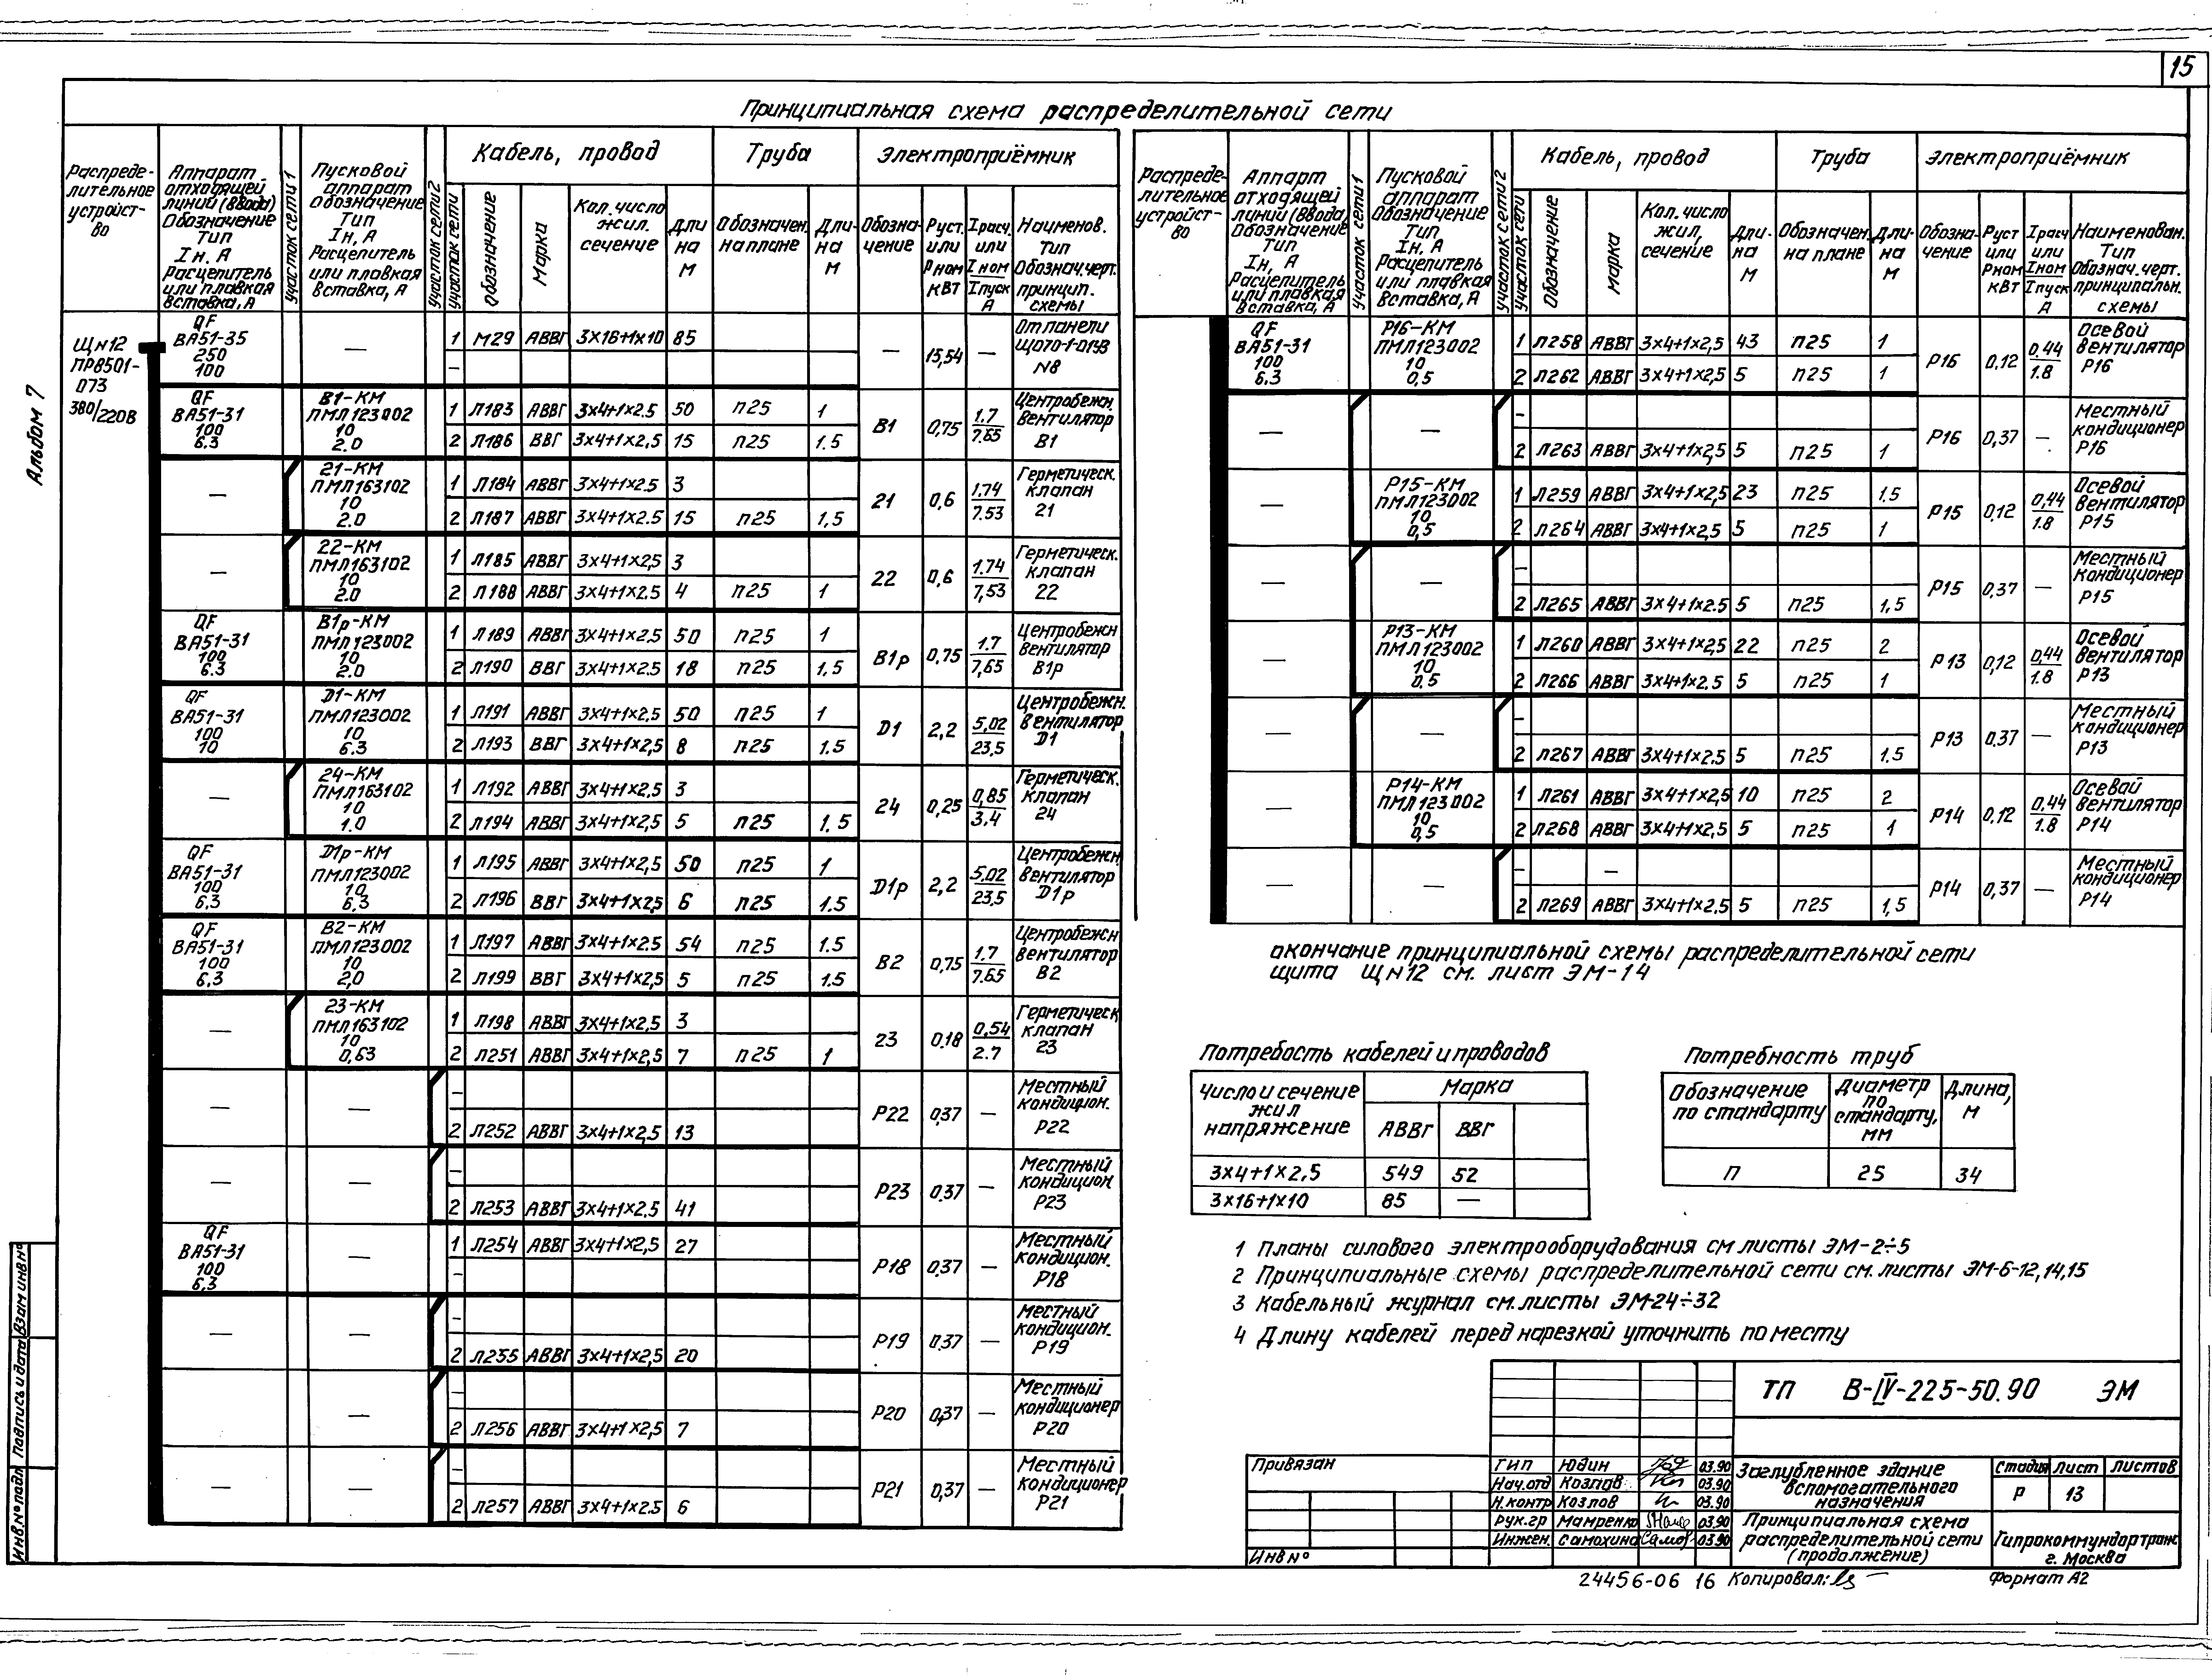 15
Альбом 7
Принципиальная схема распределительной сети
Распреде-
лительное
устройст-
во
Аппарат
отходящей
линий (ввода)
Обозначение
Тип
Iн, А
Расцепитель
или плавкая
вставка, А
Участок сети 1
Пусковой
аппарат
Обозначение
Тип
Iн, А
Расцепитель
или плавкая
вставка, А
Участок сети 2
Кабель, провод
Участок сети
Обозначение
Марка
Кол. число
жил.
сечение
Дли
на
м
Труба
Обозначен.
на плане
Дли-
на
м
Электроприёмник
Обозна-
чение
Руст.
или
Рном
кВт
Iрасч.
или
Iном
Iпуск
А
Наименов.
Тип
Обознач.черт.
принцип.
схемы
ЩН12
ПР8501-
073
380/220В
QF ВА51-35 250 100 — 1 М29 АВВГ 3×16+1×10 85 — 15,54 — От панели ЩО70-1-01У3 №8
–
QF ВА51-31 100 6.3 В1-КМ ПМЛ123002 10 2.0 1 Л183 АВВГ 3×4+1×2.5 50 п25 1 В1 0,75 1.7 7.65 Центробежн. вентилятор В1
2 Л186 ВВГ 3×4+1×2,5 15 п25 1.5
— 21-КМ ПМЛ163102 10 2.0 1 Л184 АВВГ 3×4+1×2.5 3 21 0,6 1.74 7.53 Герметическ. клапан 21
2 Л187 АВВГ 3×4+1×2.5 15 п25 1,5
— 22-КМ ПМЛ163102 10 2.0 1 Л185 АВВГ 3×4+1×2,5 3 22 0,6 1.74 7,53 Герметическ. клапан 22
2 Л188 АВВГ 3×4+1×2.5 4 п25 1
QF ВА51-31 100 6.3 В1р-КМ ПМЛ123002 10 2.0 1 Л189 АВВГ 3×4+1×2.5 50 п25 1 В1р 0,75 1.7 7,65 Центробежн вентилятор В1р
2 Л190 ВВГ 3×4+1×2,5 18 п25 1,5
QF ВА51-31 100 10 D1-КМ ПМЛ123002 10 6.3 1 Л191 АВВГ 3×4+1×2,5 50 п25 1 D1 2,2 5,02 23,5 Центробежн. вентилятор D1
2 Л193 ВВГ 3×4+1×2,5 8 п25 1.5
— 24-КМ ПМЛ163102 10 1.0 1 Л192 АВВГ 3×4+1×2,5 3 24 0,25 0,85 3,4 Герметическ. клапан 24
2 Л194 АВВГ 3×4+1×2,5 5 п25 1.5
QF ВА51-31 100 6.3 D1р-КМ ПМЛ123002 10 6,3 1 Л195 АВВГ 3×4+1×2,5 50 п25 1 D1р 2,2 5,02 23,5 Центробежн. вентилятор D1р
2 Л196 ВВГ 3×4+1×2,5 6 п25 1.5
QF ВА51-31 100 6.3 В2-КМ ПМЛ123002 10 2,0 1 Л197 АВВГ 3×4+1×2.5 54 п25 1.5 В2 0,75 1.7 7.65 Центробежн вентилятор В2
2 Л199 ВВГ 3×4+1×2,5 5 п25 1.5
— 23-КМ ПМЛ163102 10 0,63 1 Л198 АВВГ 3×4+1×2,5 3 23 0.18 0,54 2.7 Герметическ клапан 23
2 Л251 АВВГ 3×4+1×2,5 7 п25 1
— — – Р22 0,37 — Местный кондицион. Р22
2 Л252 АВВГ 3×4+1×2,5 13
— — – Р23 0.37 — Местный кондицион Р23
2 Л253 АВВГ 3×4+1×2,5 41
QF ВА51-31 100 6.3 — 1 Л254 АВВГ 3×4+1×2,5 27 Р18 0.37 — Местный кондицион. Р18
–
— — – Р19 0.37 — Местный кондицион. Р19
2 Л255 АВВГ 3×4+1×2,5 20
— – Р20 0,37 — Местный кондиционер Р20
2 Л256 АВВГ 3×4+1×2,5 7
— — – Р21 0,37 — Местный кондиционер Р21
2 Л257 АВВГ 3×4+1×2.5 6
Распреде-
лительное
устройст-
во
Аппарат
отходящей
линий (ввода)
Обозначение
Тип
Iн, А
Расцепитель
или плавкая
вставка, А
Участок сети 1
Пусковой
аппарат
Обозначение
Тип
Iн, А
Расцепитель
или плавкая
вставка, А
Участок сети 2
Кабель, провод
Участок сети
Обозначение
Марка
Кол. число
жил,
сечение
Дли-
на
м
Труба
Обозначен.
на плане
Дли-
на
м
Электроприёмник
Обозна-
чение
Руст
или
Рном
кВт
Iрасч
или
Iном
Iпуск
А
Наименован.
Тип
Обознач.черт.
принципиальн.
схемы
QF ВА51-31 100 6.3 Р16-КМ ПМЛ123002 10 0,5 1 Л258 АВВГ 3×4+1×2,5 43 п25 1 Р16 0,12 0.44 1.8 Осевой вентилятор Р16
2 Л262 АВВГ 3×4+1×2,5 5 п25 1
— — – Р16 0,37 — Местный кондиционер Р16
2 Л263 АВВГ 3×4+1×2,5 5 п25 1
— Р15-КМ ПМЛ123002 10 0,5 1 Л259 АВВГ 3×4+1×2,5 23 п25 1,5 Р15 0,12 0,44 1.8 Осевой вентилятор Р15
2 Л264 АВВГ 3×4+1×2,5 5 п25 1
— — – Р15 0,37 — Местный кондиционер Р15
2 Л265 АВВГ 3×4+1×2.5 5 п25 1,5
— Р13-КМ ПМЛ123002 10 0.5 1 Л260 АВВГ 3×4+1×2,5 22 п25 2 Р13 0,12 0,44 1.8 Осевой вентилятор Р13
2 Л266 АВВГ 3×4+1×2.5 5 п25 1
— — – Р13 0,37 — Местный кондиционер Р13
2 Л267 АВВГ 3×4+1×2,5 5 п25 1.5
— Р14-КМ ПМЛ123002 10 0,5 1 Л261 АВВГ 3×4+1×2,5 10 п25 2 Р14 0,12 0.44 1.8 Осевой вентилятор Р14
2 Л268 АВВГ 3×4+1×2,5 5 п25 1
— — – — Р14 0,37 — Местный кондиционер Р14
2 Л269 АВВГ 3×4+1×2,5 5 п25 1,5
окончание принципиальной схемы распределительной сети
щита ЩН12 см. лист ЭМ-14
Потребость кабелей и проводов
Число и сечение
жил
напряжение
Марка
АВВГ ВВГ
3×4+1×2,5 549 52
3×16+1×10 85 —
Потребность труб
Обозначение
по стандарту
Диаметр
по
стандарту,
мм
Длина,
м
П 25 34
1 Планы силового электрооборудования см листы ЭМ-2÷5
2 Принципиальные схемы распределительной сети см. листы ЭМ-6-12,14,15
3 Кабельный журнал см. листы ЭМ-24÷32
4 Длину кабелей перед нарезкой уточнить по месту
ТП В-IV-225-50.90 ЭМ
Привязан
Инв №
ГИП Юдин 03.90
Нач.отд Козлов 03.90
Н.контр Козлов 03.90
Рук.гр Мамренко 03.90
Инжен. Самохина 03.90
Заглубленное здание
вспомогательного
назначения
Стадия Лист Листов
Р 13
Принципиальная схема
распределительной сети
(продолжение)
Гипрокоммундортранс
г. Москва
24456-06 16 Копировал:
Формат А2
Взам инв №
Подпись и дата
Инв.№ подл